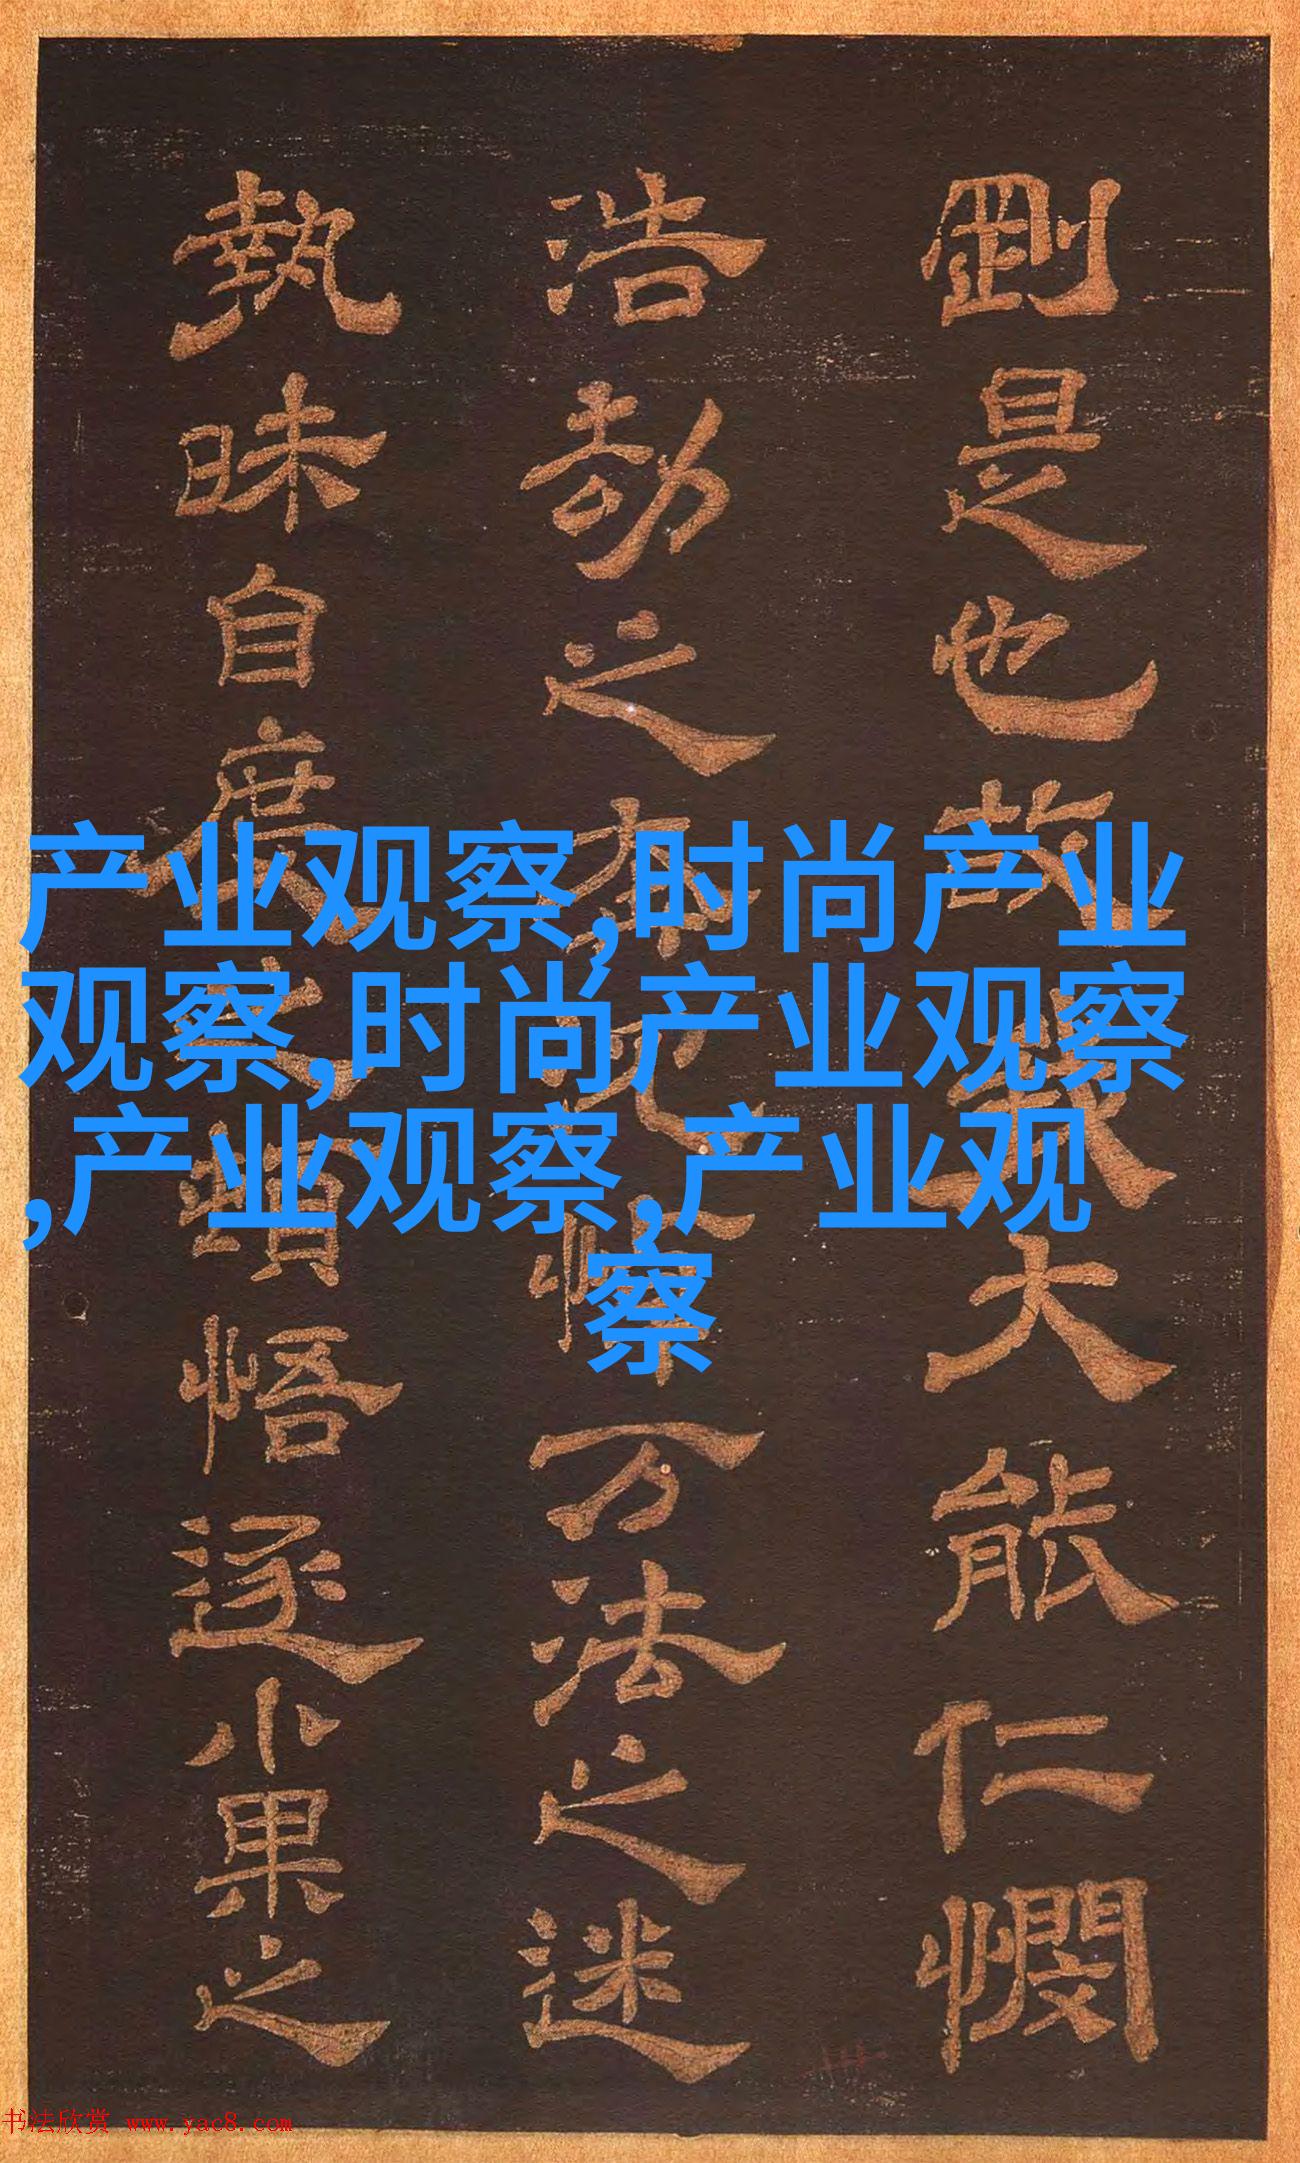 剛是也故我大能仁憫
浩劫之有万法之迷
執昧自度之頓悟逐小果之
产业观察,时尚产业
观察,时尚产业观察
,产业观察,产业观
察
书法欣赏 www.yac8.com